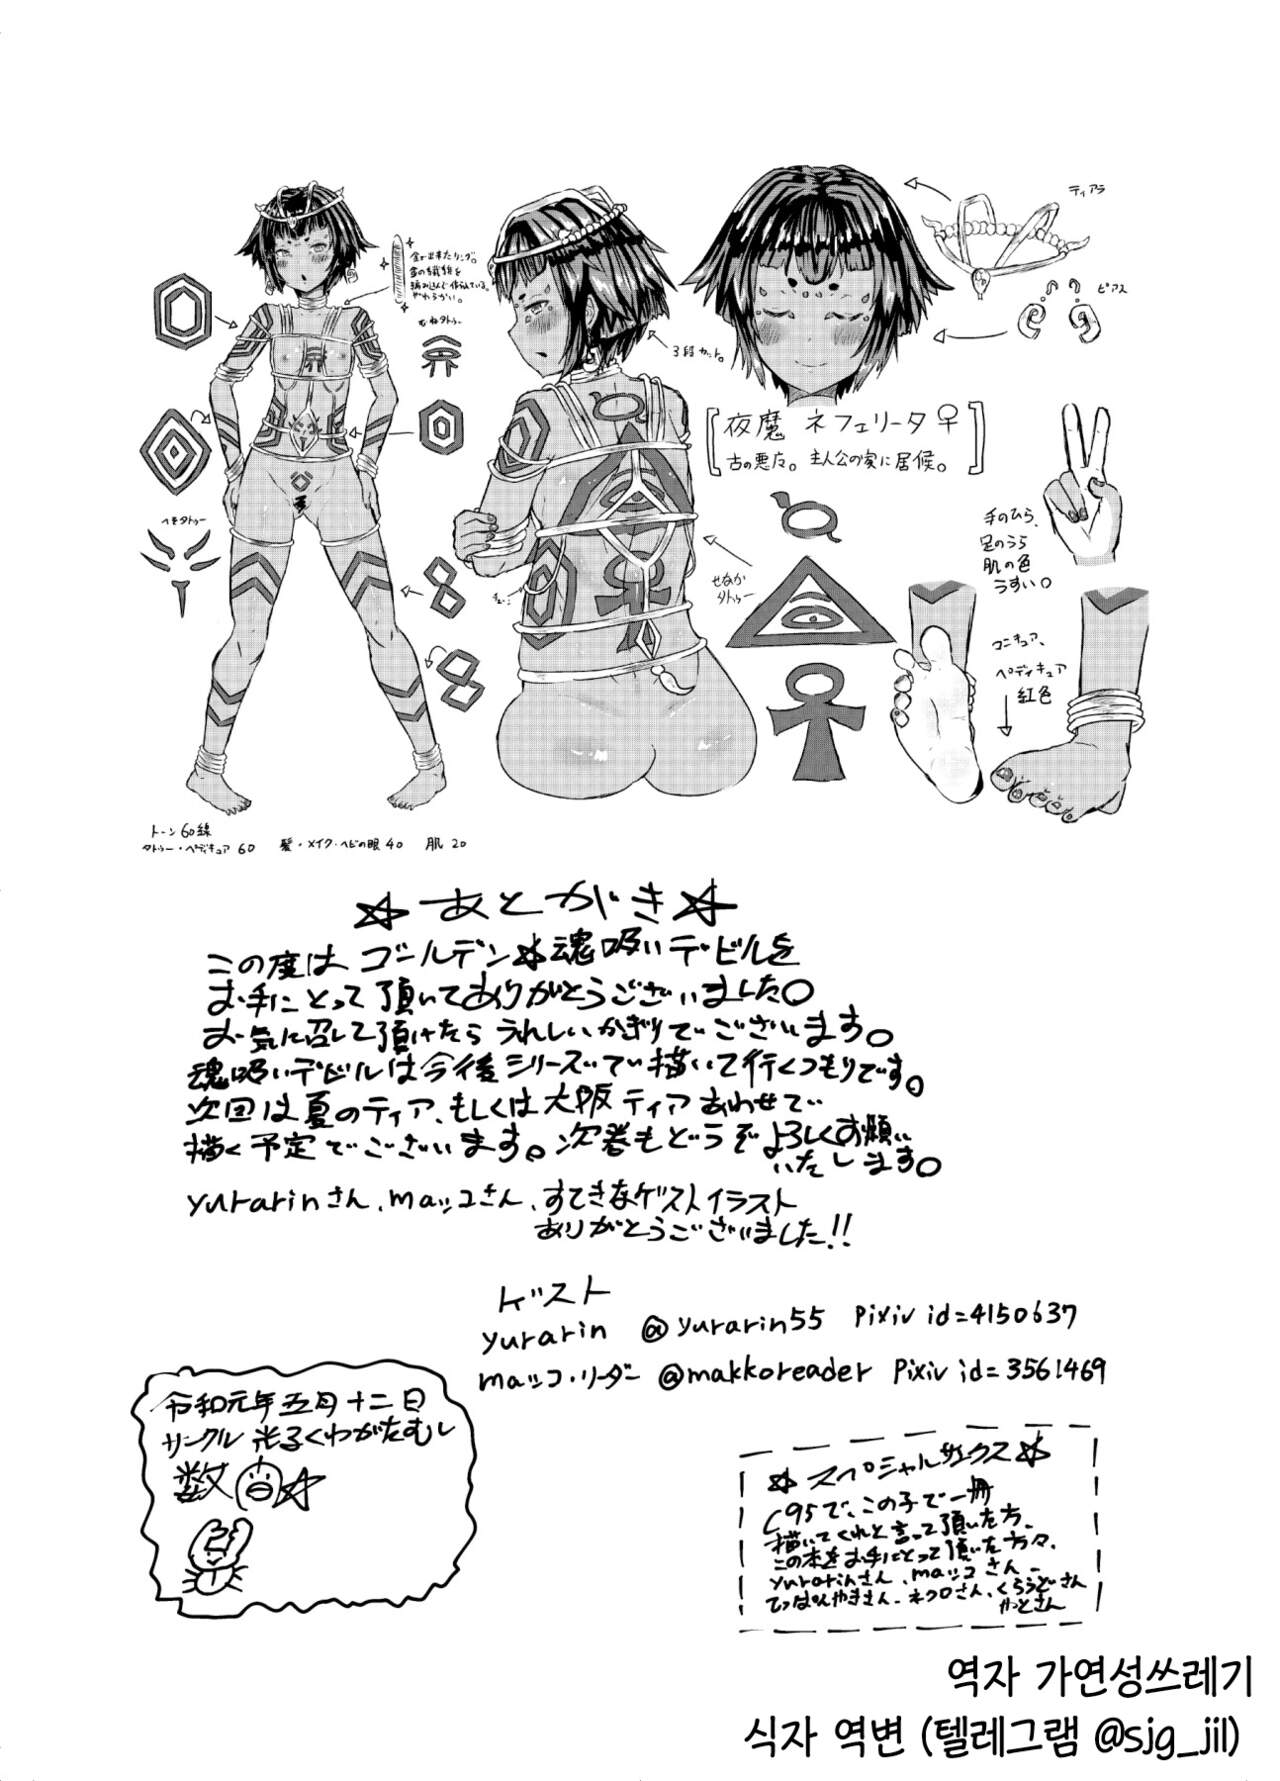 ティアラ
金で出来たリング。
金の繊維を
編み込んで作られている。
やわらかい。
むねタトゥー
3段カット。
ピアス
夜魔 ネフェリータ♀
古の悪魔。主人公の家に居候。
手のひら、
足のうら
肌の色
うすい。
へそタトゥー
せなか
タトゥー
マニキュア、
ペディキュア
紅色
トーン60線
タトゥー・ペディキュア 60 髪・メイク・ヘビの眼 40 肌 20
☆あとがき☆
この度は ゴールデン☆魂吸いデビルを
お手にとって頂いてありがとうございました。
お気に召して頂けたら うれしいかぎりでございます。
魂吸いデビルは今後シリーズで描いて行くつもりです。
次回は夏のティア、もしくは大阪ティアあわせで
描く予定でございます。次巻もどうぞよろしくお願い
いたします。
yurarinさん、maッコさん、すてきなゲストイラスト
ありがとうございました!!
ゲスト
yurarin @yurarin55 Pixiv id=4150637
maッコ・リーダー @makkoreader Pixiv id=3561469
令和元年五月十二日
サークル 光子くわがたむし
数
☆スペシャルサンクス☆
C95で、この子で一冊
描いてくれと言って頂いた方、
この本をお手にとって頂いた方々、
yurarinさん、maッコさん、
てっぱんやきさん、ネクロさん、くろうどさん
やっとさん
역자 가연성쓰레기
식자 역변 (텔레그램 @sjg_jil)